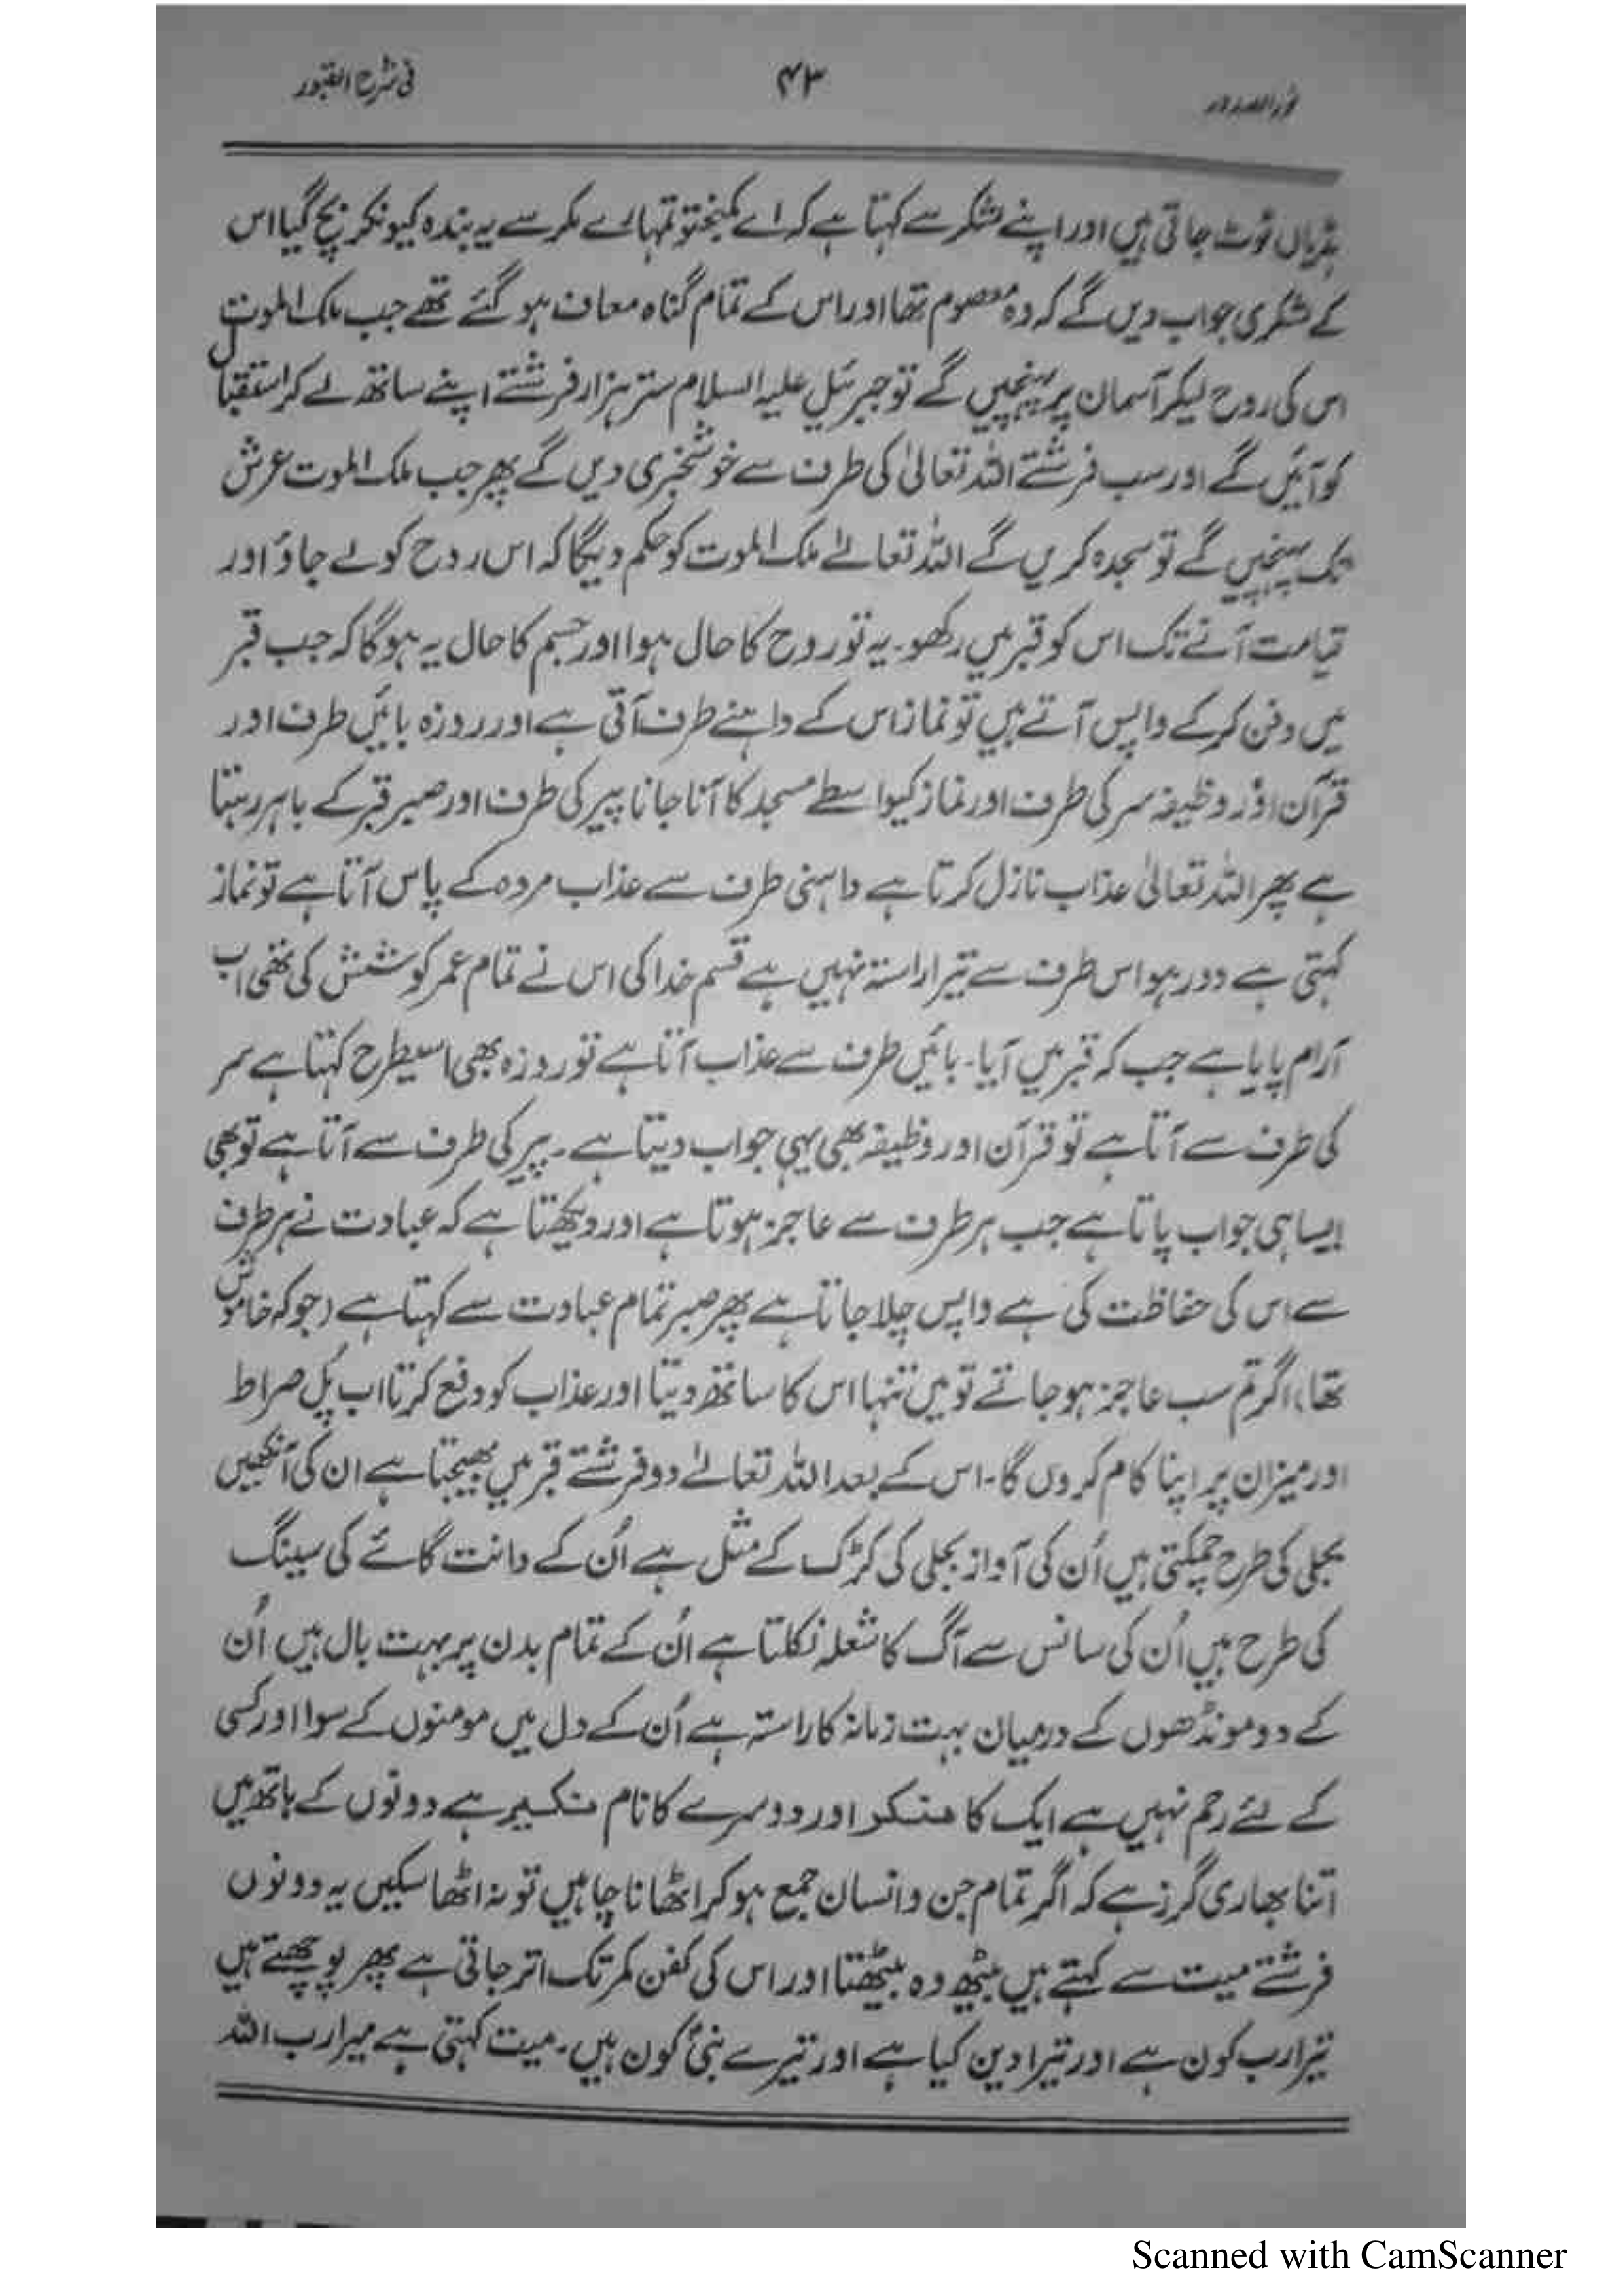 نور الصدور ۴۳ فی شرح القبور
ہڈیاں ٹوٹ جاتی ہیں اور اپنے لشکر سے کہتا ہے کہ اے کمبختو تمہارے مکر سے یہ بندہ کیونکر بچ گیا اس
کے لشکری جواب دیں گے کہ وہ معصوم تھا اور اس کے تمام گناہ معاف ہو گئے تھے جب ملک الموت
اس کی روح لیکر آسمان پر پہنچیں گے تو جبرئیل علیہ السلام ستر ہزار فرشتے اپنے ساتھ لے کر استقبال
کو آئیں گے اور سب فرشتے اللہ تعالیٰ کی طرف سے خوشخبری دیں گے پھر جب ملک الموت عرش
تک پہنچیں گے تو سجدہ کریں گے اللہ تعالےٰ ملک الموت کو حکم دیگا کہ اس روح کو لے جاؤ اور
قیامت آنے تک اس کو قبر میں رکھو۔ یہ تو روح کا حال ہوا اور جسم کا حال یہ ہوگا کہ جب قبر
میں دفن کر کے واپس آتے ہیں تو نماز اس کے داہنے طرف آتی ہے اور روزہ بائیں طرف اور
قرآن اور وظیفہ سر کی طرف اور نماز کیواسطے مسجد کا آنا جانا پیر کی طرف اور صبر قبر کے باہر رہتا
ہے پھر اللہ تعالیٰ عذاب نازل کرتا ہے داہنی طرف سے عذاب مردہ کے پاس آتا ہے تو نماز
کہتی ہے دور ہو اس طرف سے تیرا راستہ نہیں ہے قسم خدا کی اس نے تمام عمر کوشش کی تھی اب
آرام پایا ہے جب کہ قبر میں آیا۔ بائیں طرف سے عذاب آتا ہے تو روزہ بھی اسیطرح کہتا ہے سر
کی طرف سے آتا ہے تو قرآن اور وظیفہ بھی یہی جواب دیتا ہے۔ پیر کی طرف سے آتا ہے تو بھی
ایسا ہی جواب پاتا ہے جب ہر طرف سے عاجز ہوتا ہے اور دیکھتا ہے کہ عبادت نے ہر طرف
سے اس کی حفاظت کی ہے واپس چلا جاتا ہے پھر صبر تمام عبادت سے کہتا ہے (جو کہ خاموش
تھا) اگر تم سب عاجز ہو جاتے تو میں تنہا اس کا ساتھ دیتا اور عذاب کو دفع کرتا اب پُل صراط
اور میزان پر اپنا کام کروں گا۔ اس کے بعد اللہ تعالےٰ دو فرشتے قبر میں بھیجتا ہے ان کی آنکھیں
بجلی کی طرح چمکتی ہیں اُن کی آواز بجلی کی کڑک کے مثل ہے اُن کے دانت گائے کی سینگ
کی طرح ہیں اُن کی سانس سے آگ کا شعلہ نکلتا ہے اُن کے تمام بدن پر بہت بال ہیں اُن
کے دو مونڈھوں کے درمیان بہت زمانہ کا راستہ ہے اُن کے دل میں مومنوں کے سوا اور کسی
کے لئے رحم نہیں ہے ایک کا منکر اور دوسرے کا نام نکیر ہے دونوں کے ہاتھ میں
اتنا بھاری گرز ہے کہ اگر تمام جن و انسان جمع ہو کر اٹھانا چاہیں تو نہ اٹھا سکیں یہ دونوں
فرشتے میت سے کہتے ہیں بیٹھ وہ بیٹھتا اور اس کی کفن کمر تک اتر جاتی ہے پھر پوچھتے ہیں
تیرا رب کون ہے اور تیرا دین کیا ہے اور تیرے نبیؐ کون ہیں۔ میت کہتی ہے میرا رب اللہ
Scanned with CamScanner